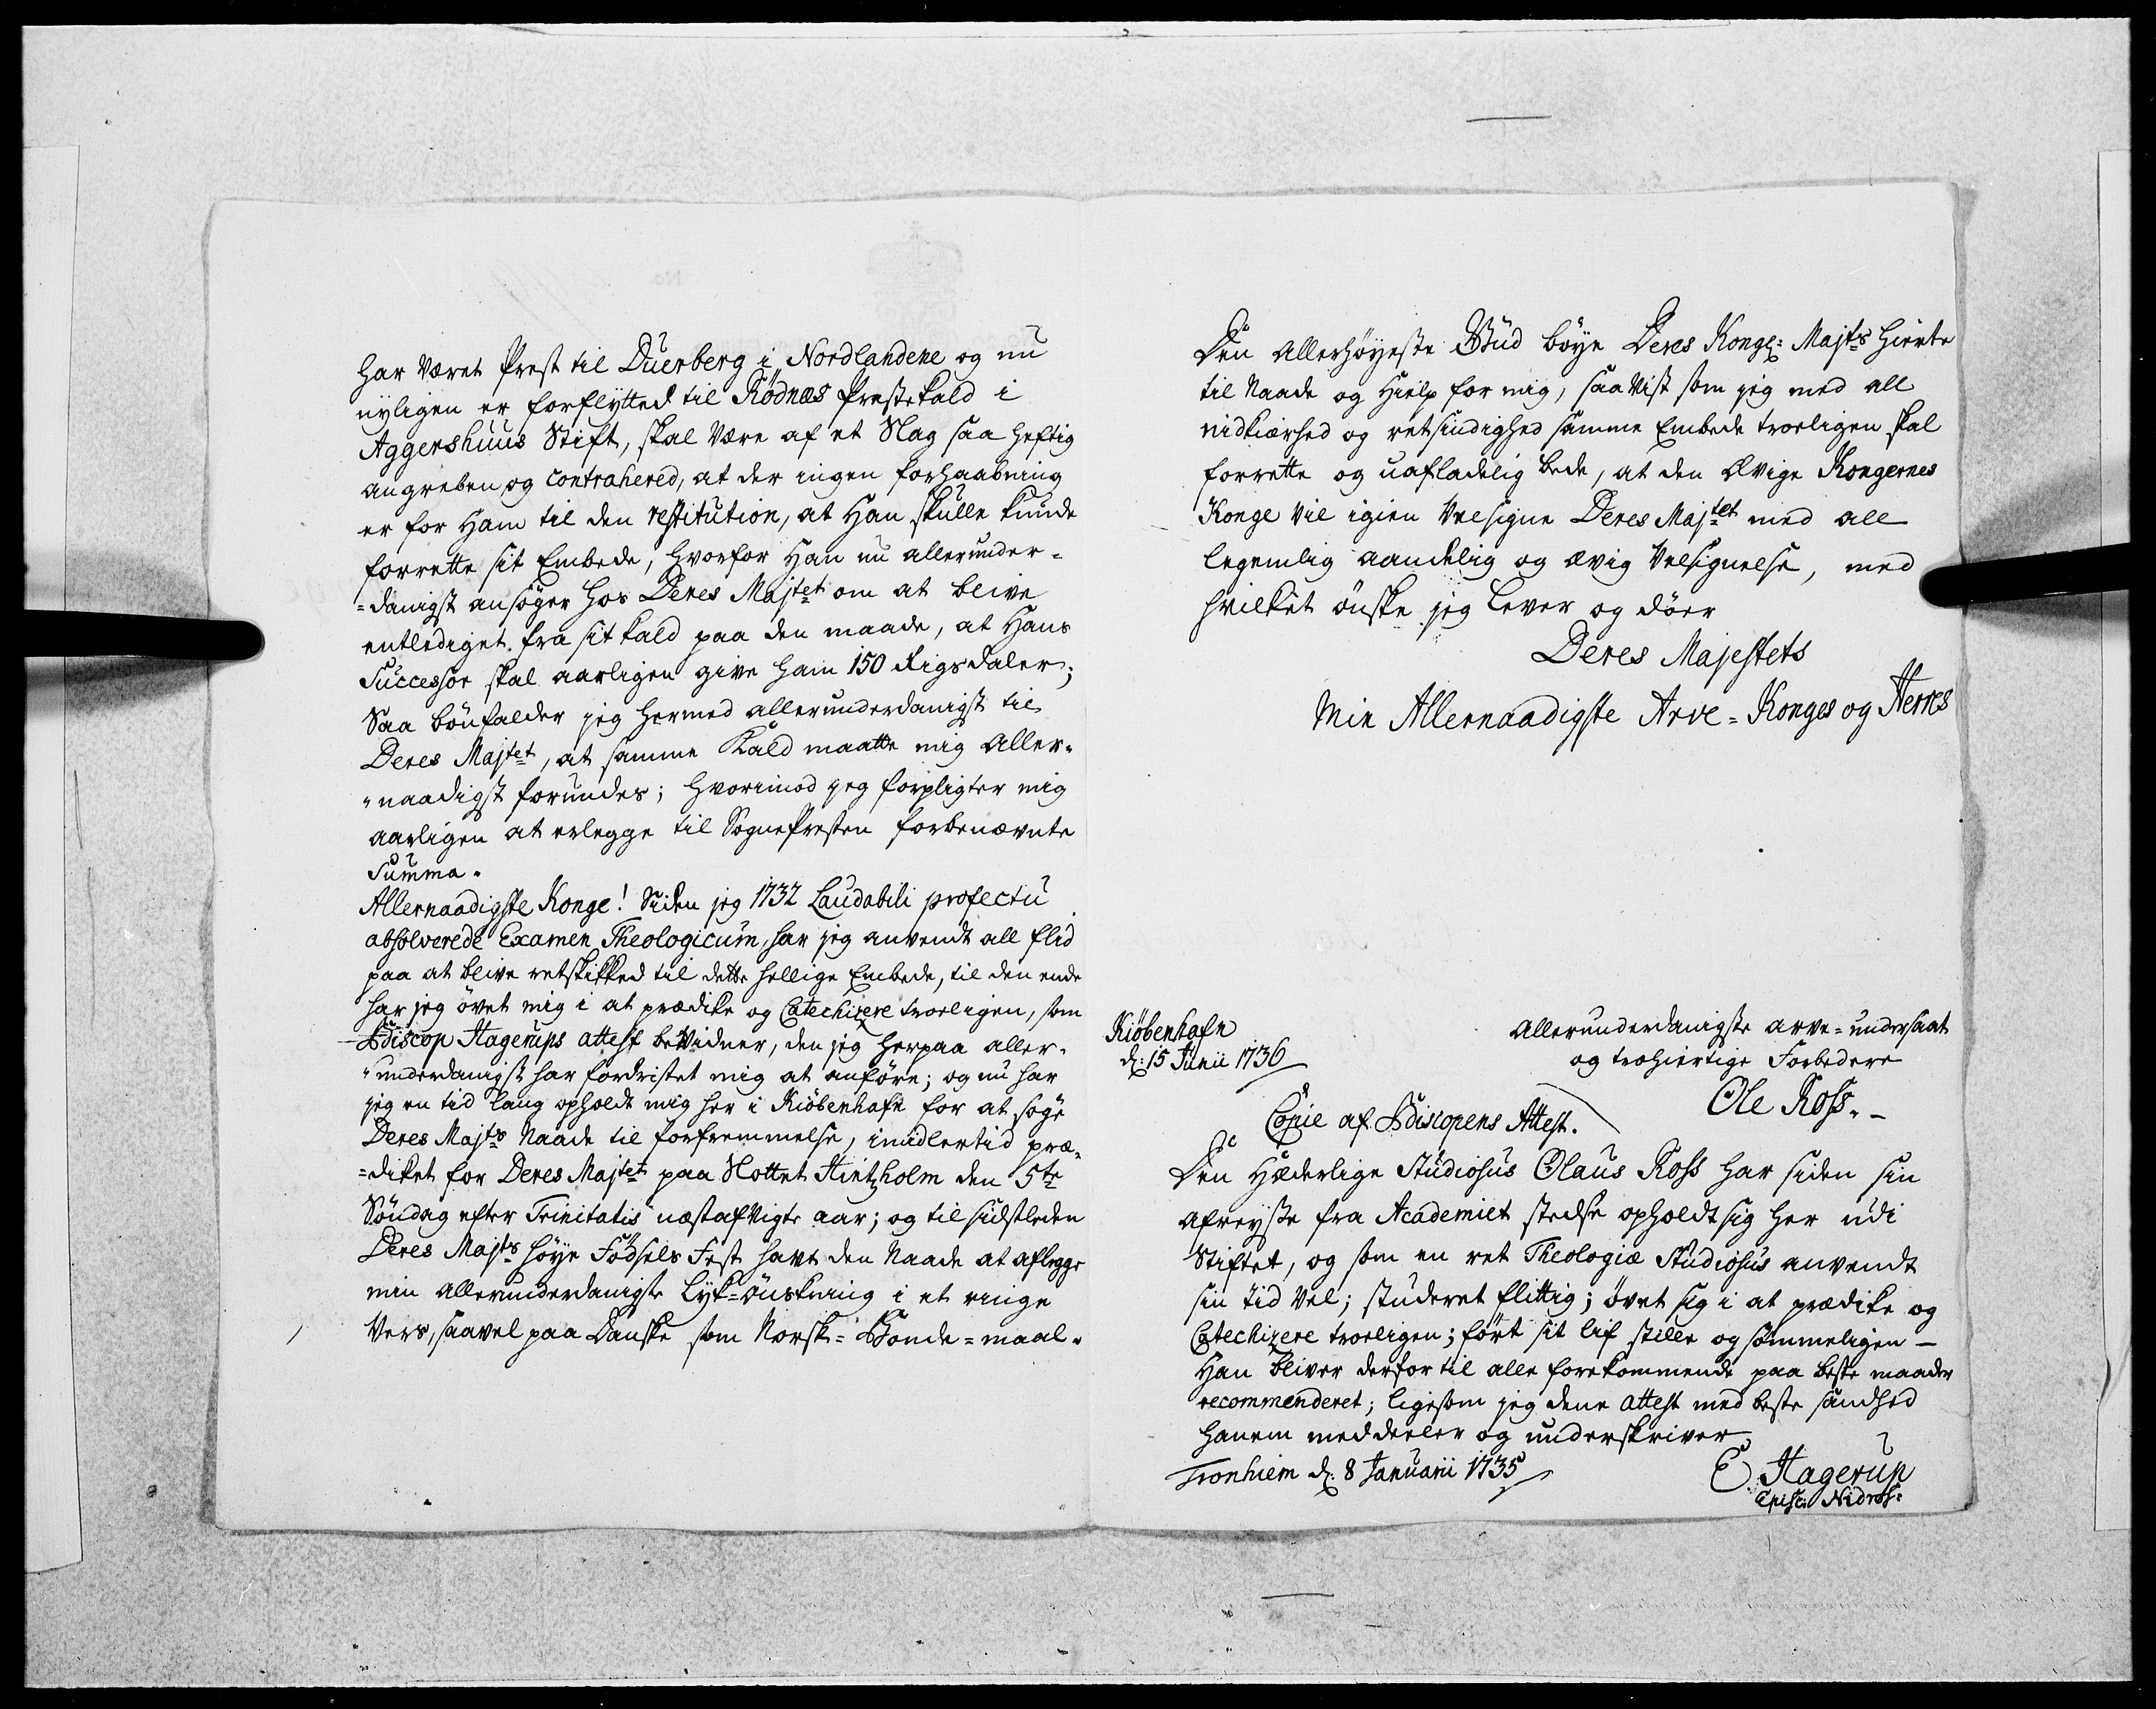 har været Prest til Duerberg i Nordlandene og nu
nyligen er forflytted til Rødnæs Prestekald i
Aggershuus Stift, skal være af et Slag saa heftig
angreben og contrahered, at der ingen forhaabning
er for Ham til den restitution, at Han skulle kunde
forrette sit Embede, hvorfor Han nu allerunder-
=danigst ansøger hos Deres Majtet om at blive
entlediget fra sit kald paa den maade, at Hans
Successor skal aarligen give ham 150 Rigsdaler;
Saa bønfalder jeg hermed allerunderdanigst til
Deres Majtet, at samme Kald maatte mig Aller-
"naadigst forundes; hvorimod jeg forpligter mig
aarligen at erlegge til SognePresten forbenævnte
Summa.
Allernaadigste Konge! Siden jeg 1732 Laudabili profectu
absolverede Examen Theologicum, har jeg anvendt all flid
paa at blive retskikked til dette hellige Embede, til den ende
har jeg øvet mig i at prædike og Catechizere troeligen, som
Bbiscop Hagerups attest beVidner, den jeg herpaa aller-
"underdanigst har fordristet mig at anføre; og nu har
jeg en tid lang opholdt mig her i Kiøbenhafn for at søge
Deres Majts Naade til forfremmelse, imidlertid præ-
=diket for Deres Majtet paa Slottet Hirtzholm den 5te
Søndag efter Trinitatis næstafvigte aar; og til sidstleden
Deres Majts høye Fødsels Fest havt den Naade at aflegge
min allerunderdanigste Lyk=ønskning i et ringe
Vers, saavel paa Danske som Norsk=Bonde=maal.
Den Allerhøyeste Gud bøye Deres Kongl: Majts hierte
til Naade og Hielp for mig, saa vist som jeg med all
nidkiærhed og retsindighed samme Embede troeligen skal
forrette og uafladelig bede, at den Ævige Kongernes
Konge vil igien Velsigne Deres Majtet med all
legemlig aandelig og ævig Velsignelse, med
hvilket ønske jeg lever og døer
Deres Majestets
Min Allernaadigste Arve=Konges og Herres
Kiøbenhafn
d: 15 Junii 1736
allerunderdanigste arve=undersaat
og trohiertige Forbedere
Ole Ross.
Copie af Bbiscopens Attest.
Den Hæderlige Studiosus Olaus Ross har siden sin
afreyse fra Academiet stedse opholdt sig her udi
Stiftet, og som en ret Theologiæ Studiosus anvendt
sin tid vel; studeret flittig; øvet sig i at prædike og
Catechizere troeligen; ført sit lif stille og sømmeligen -
Han bliver derfor til alle forekommende paa beste maader
recommenderet; ligesom jeg dene attest med beste sandhed
hanem meddeeler og underskriver
Tronhiem d: 8 Januarii 1735
E. Hagerup
Episc: Nidros: